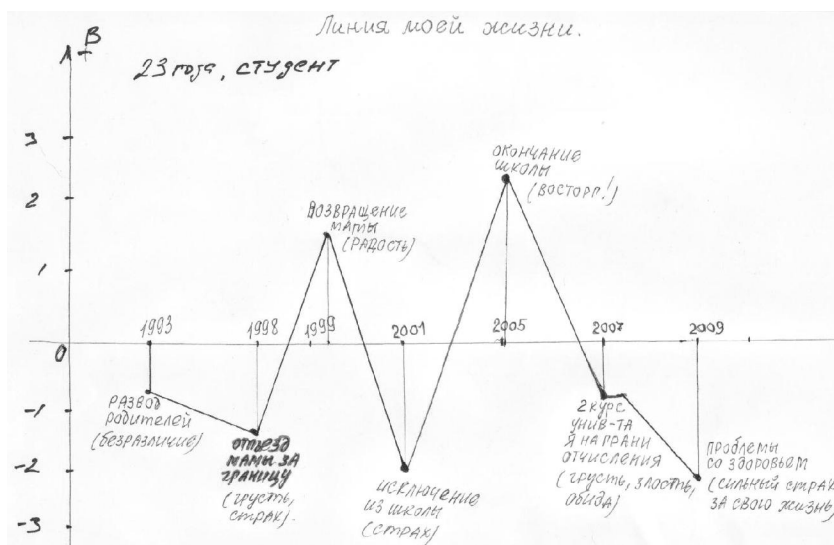 Линия моей жизни.
В
23 года, студент
3
2
1
0
-1
-2
-3
1993
1998
1999
2001
2005
2007
2009
РАЗВОД
РОДИТЕЛЕЙ
(безразличие)
ОТЪЕЗД
МАМЫ ЗА
ГРАНИЦУ
(грусть,
страх).
ВОЗВРАЩЕНИЕ
МАМЫ
(РАДОСТЬ)
ИСКЛЮЧЕНИЕ
ИЗ ШКОЛЫ
(СТРАХ)
ОКОНЧАНИЕ
ШКОЛЫ
(ВОСТОРГ!)
2 КУРС
УНИВ-ТА
Я НА ГРАНИ
ОТЧИСЛЕНИЯ
(ГРУСТЬ, ЗЛОСТЬ,
ОБИДА)
ПРОБЛЕМЫ
СО ЗДОРОВЬЕМ
(СИЛЬНЫЙ СТРАХ
ЗА СВОЮ ЖИЗНЬ)